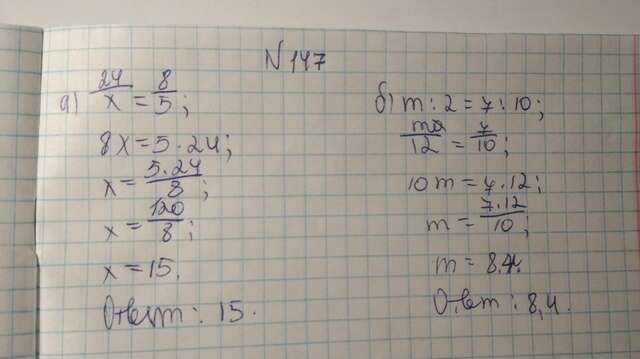 N 147
а) 24/x = 8/5;
8x = 5 · 24;
x = 5·24/8;
x = 120/8;
x = 15.
Ответ: 15.
б) m : 2 = 7 : 10;
/12 = 7/10;
10m = 7·12;
m = 7·12/10;
m = 8,4.
Ответ: 8,4.